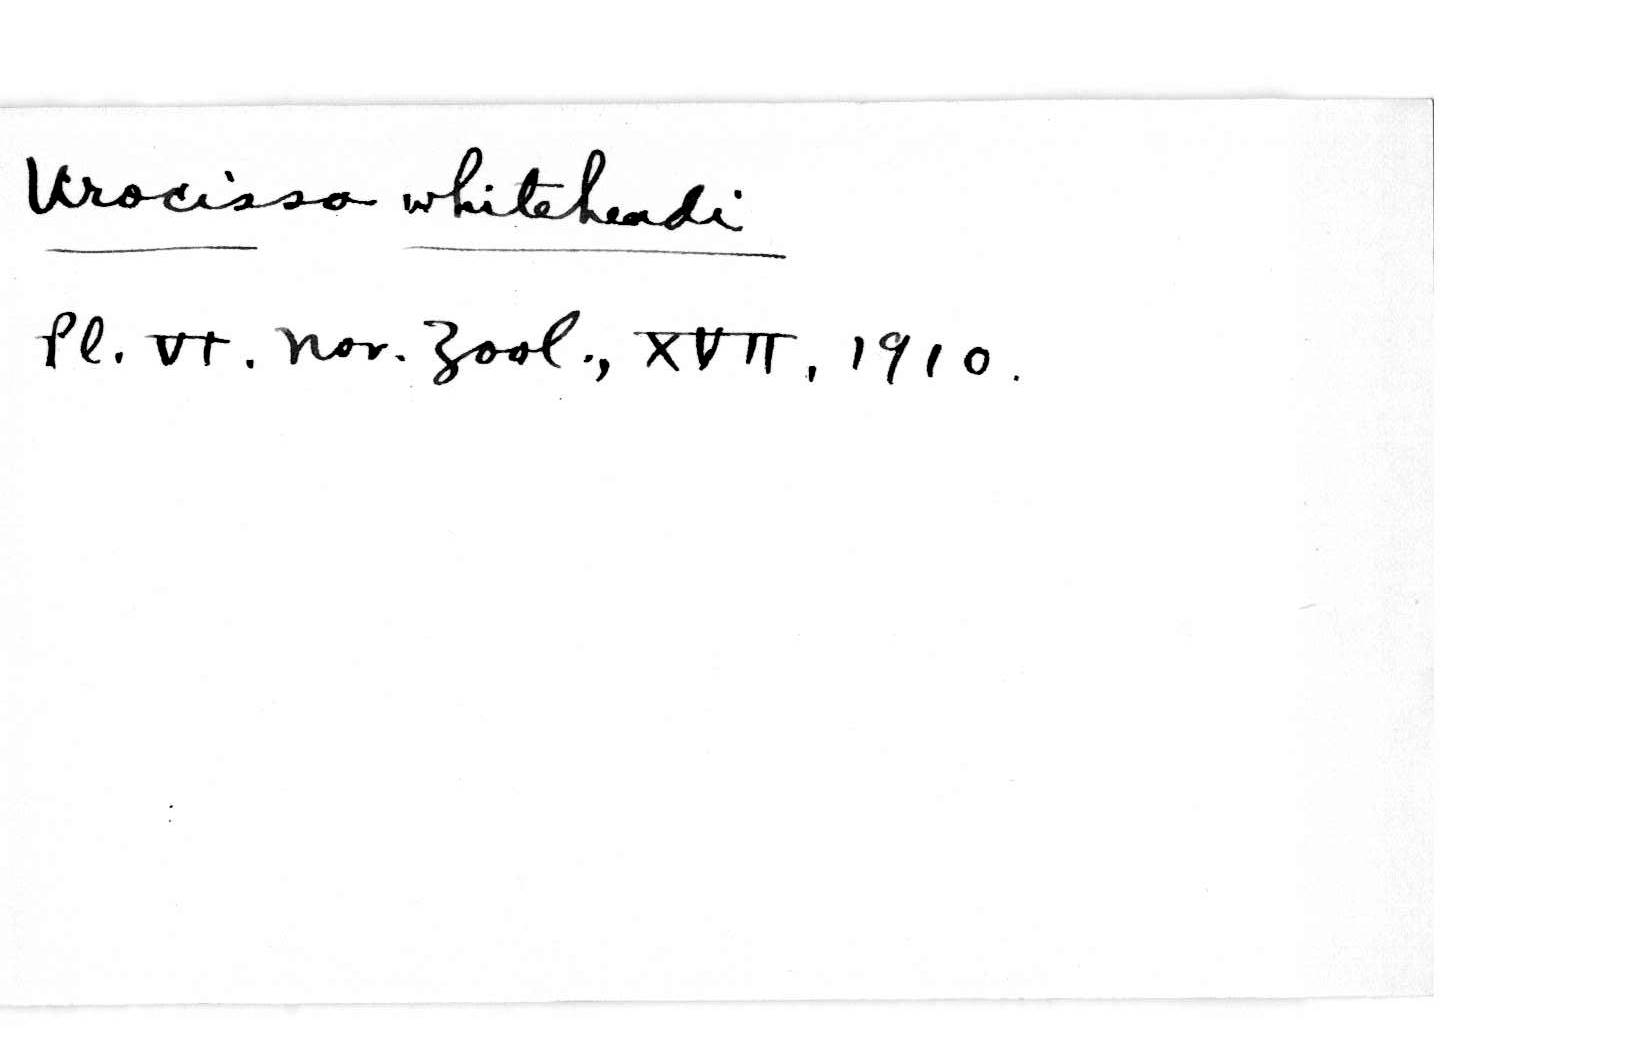 Urocissa whiteheadi
Pl. VI. Nov. Zool., XVII, 1910.